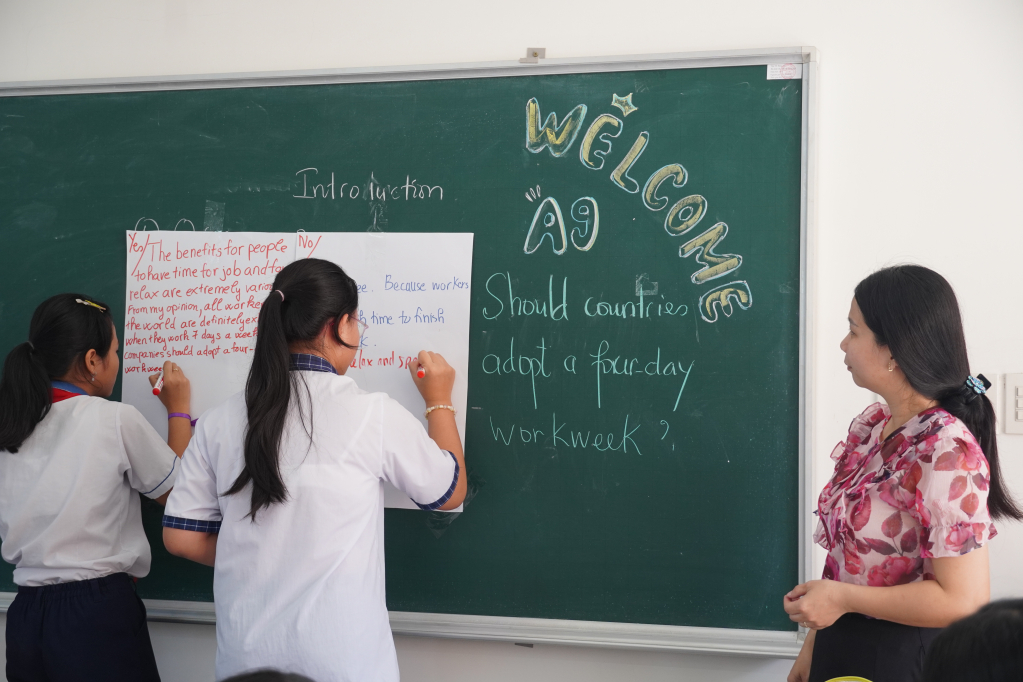 WELCOME
A9
Introduction
Should countries
adopt a four-day
workweek?
Yes/ The benefits for people
to have time for job and
relax are extremely
From my opinion, all
the world are definitely
when they work 7 days a week
companies should adopt a four-
No/
Because workers
time to finish
and